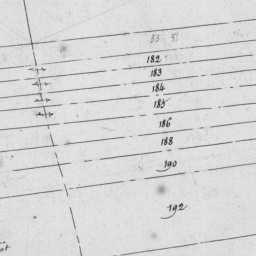 182
183
184
185
186
188
190
192